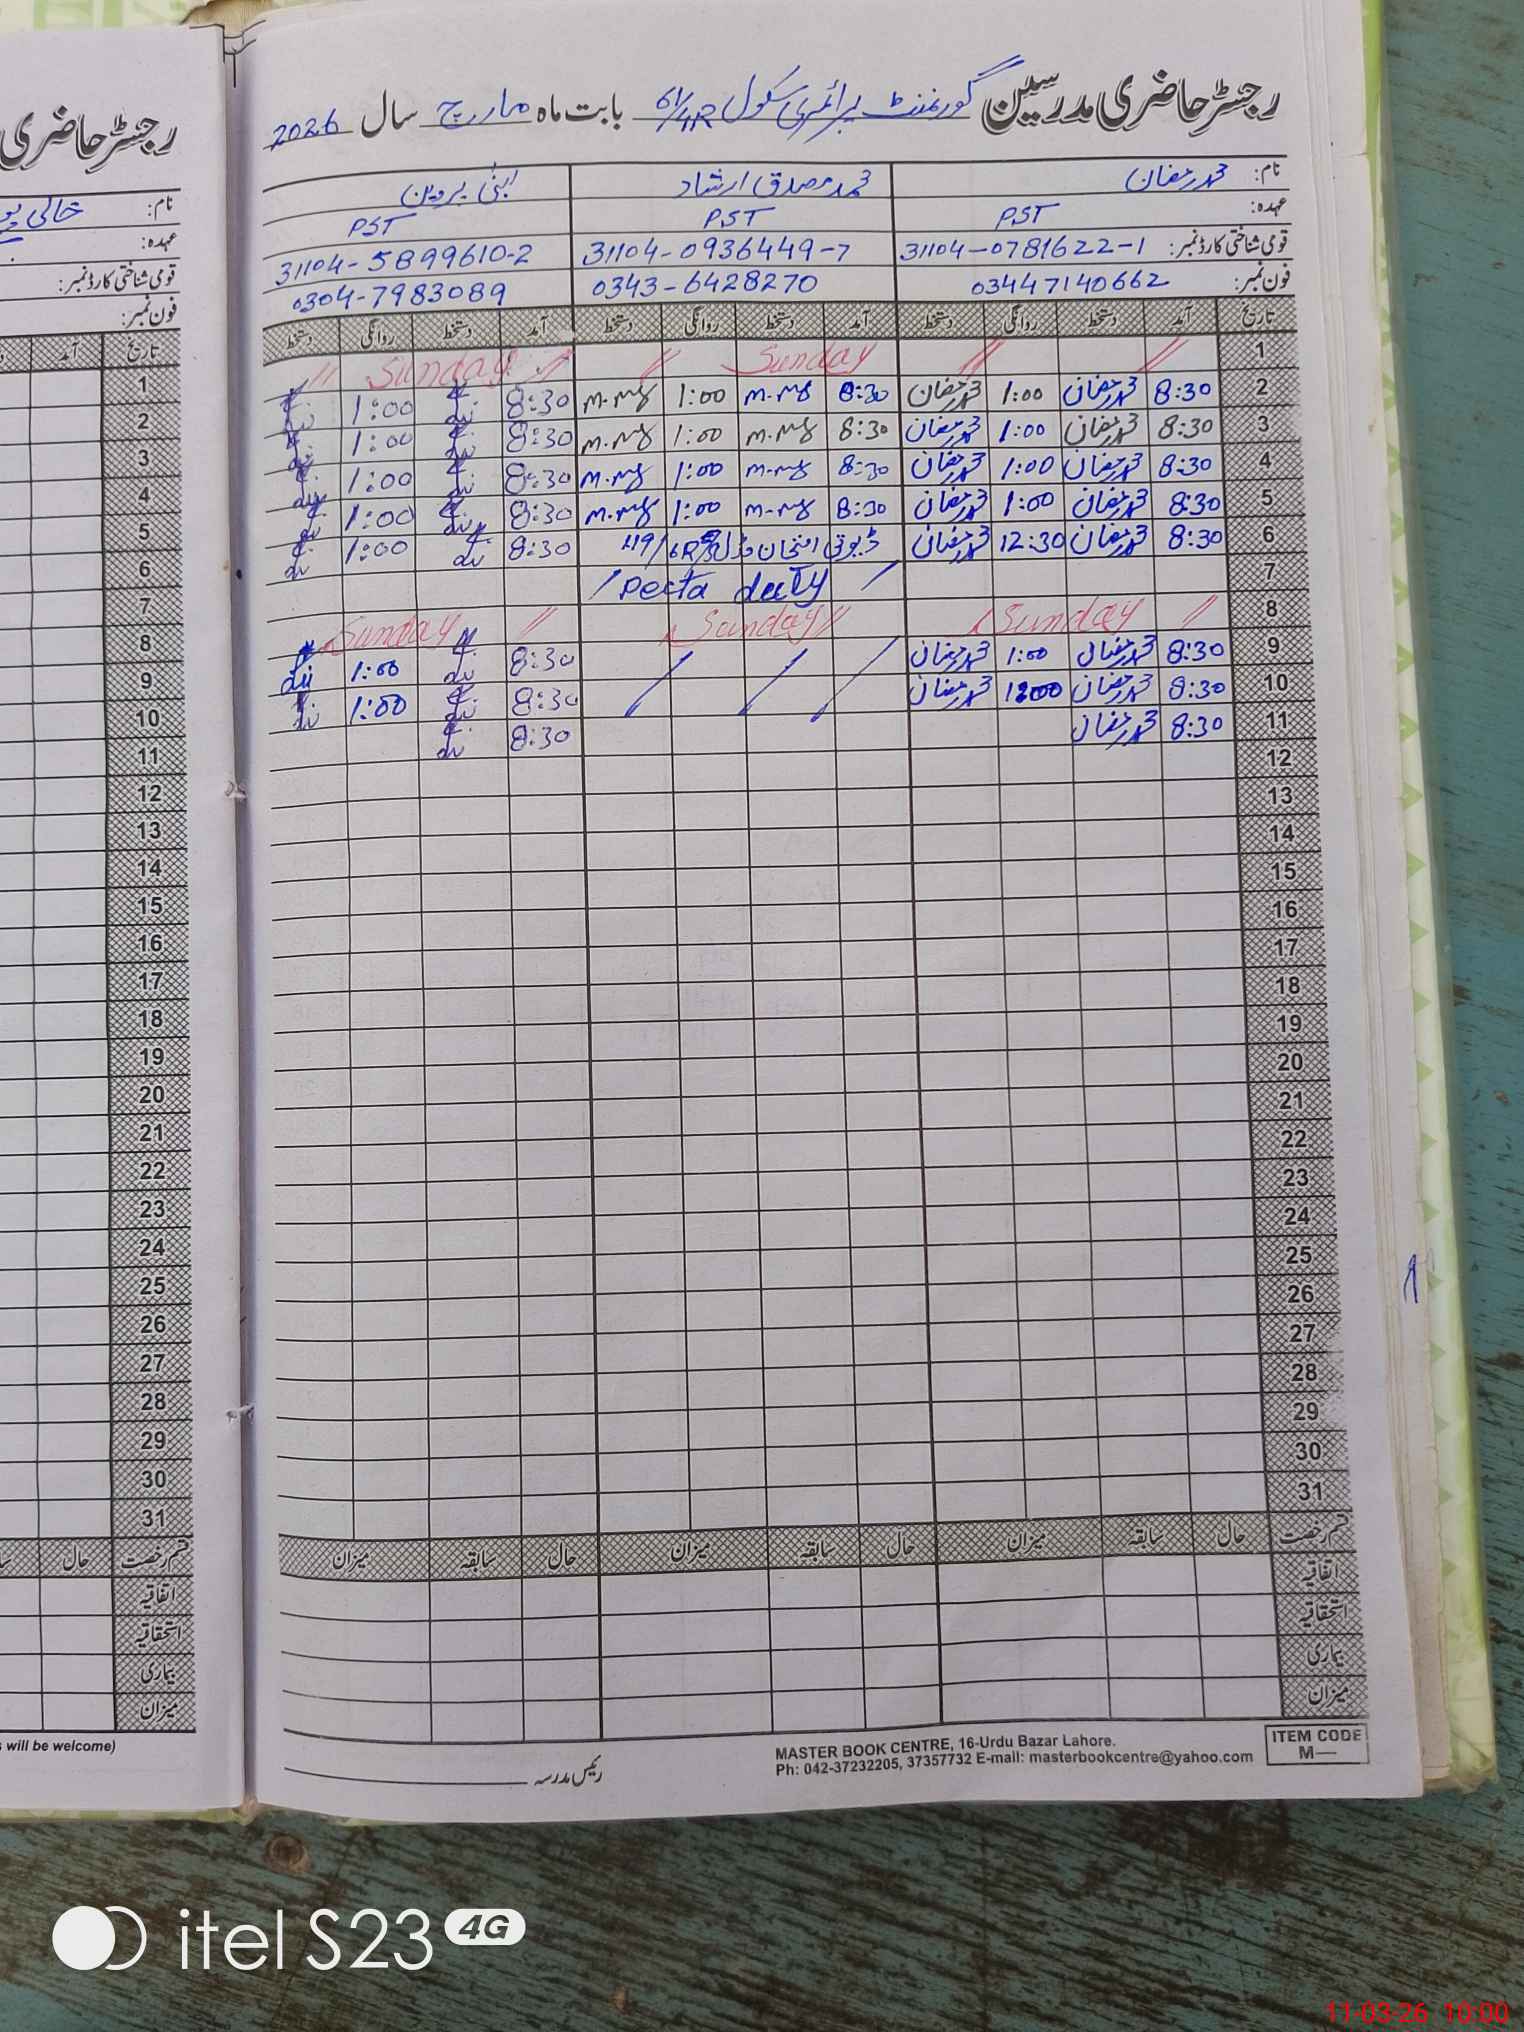 رجسٹر حاضری مدرسین گورنمنٹ پرائمری سکول 61/4R بابت ماہ مارچ سال 2026
نام: محمد رمضان محمد مصدق ارشاد پروین
عہدہ: PST PST PST
قومی شناختی کارڈ نمبر: 31104-0781622-1 31104-0936449-7 31104-5899610-2
فون نمبر: 03447140662 0343-6428270 0304-7983089
تاریخ آمد دستخط روانگی دستخط آمد دستخط روانگی دستخط آمد دستخط روانگی دستخط
1 Sunday Sunday
2 8:30 محمد رمضان 1:00 محمد رمضان 8:30 1:00 8:30 1:00
3 8:30 محمد رمضان 1:00 محمد رمضان 8:30 1:00 8:30 1:00
4 8:30 محمد رمضان 1:00 محمد رمضان 8:30 1:00 8:30 1:00
5 8:30 محمد رمضان 1:00 محمد رمضان 8:30 1:00 8:30 1:00
6 8:30 محمد رمضان 12:30 محمد رمضان ڈیوٹی امتحان 8:30 1:00
7 Pecta duty
8 Sunday Sunday Sunday
9 8:30 محمد رمضان 1:00 محمد رمضان 8:30 1:00
10 8:30 محمد رمضان محمد رمضان 8:30 1:00
11 8:30 محمد رمضان 8:30
12
13
14
15
16
17
18
19
20
21
22
23
24
25
26
27
28
29
30
31
قسم رخصت حال سابقہ میزان حال سابقہ میزان حال سابقہ میزان
اتفاقیہ
استحقاقیہ
بیماری
میزان
رئیس مدرسہ
MASTER BOOK CENTRE, 16-Urdu Bazar Lahore.
Ph: 042-37232205, 37357732 E-mail: masterbookcentre@yahoo.com
ITEM CODE
M—
رجسٹر حاضری
نام: خالی
عہدہ:
قومی شناختی کارڈ نمبر:
فون نمبر:
تاریخ آمد
1
2
3
4
5
6
7
8
9
10
11
12
13
14
15
16
17
18
19
20
21
22
23
24
25
26
27
28
29
30
31
قسم رخصت حال
اتفاقیہ
استحقاقیہ
بیماری
میزان
will be welcome)
itel S23 4G
11-03-26 10:00